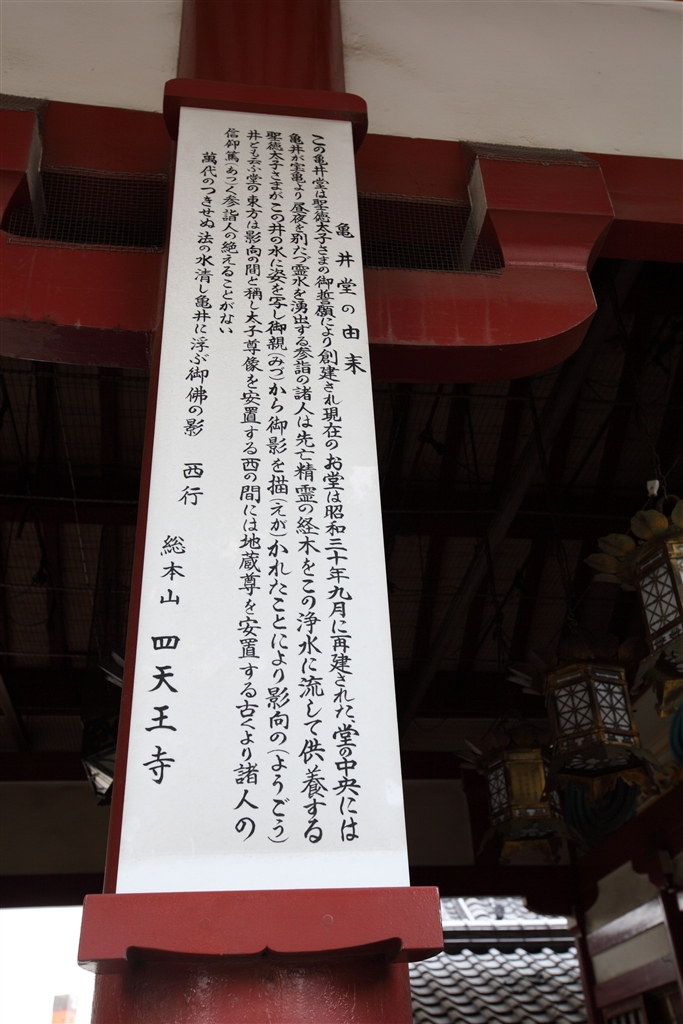 亀井堂の由来
この亀井堂は聖徳太子さまの御誓願により創建され現在のお堂は昭和三十年九月に再建された堂の中央には
亀井が宝亀より昼夜を別たづ霊水を湧出する参詣の諸人は先亡精霊の経木をこの浄水に流して供養する
聖徳太子さまがこの井の水に姿を写し御親(みづ)から御影を描(えが)かれたことにより影向の(ようごう)
井とも云ふ堂の東方は影向の間と稱し太子尊像を安置する西の間には地蔵尊を安置する古くより諸人の
信仰篤(あつ)く参詣人の絶えることがない
萬代のつきせぬ法の水清し亀井に浮ぶ御佛の影 西行
総本山 四天王寺